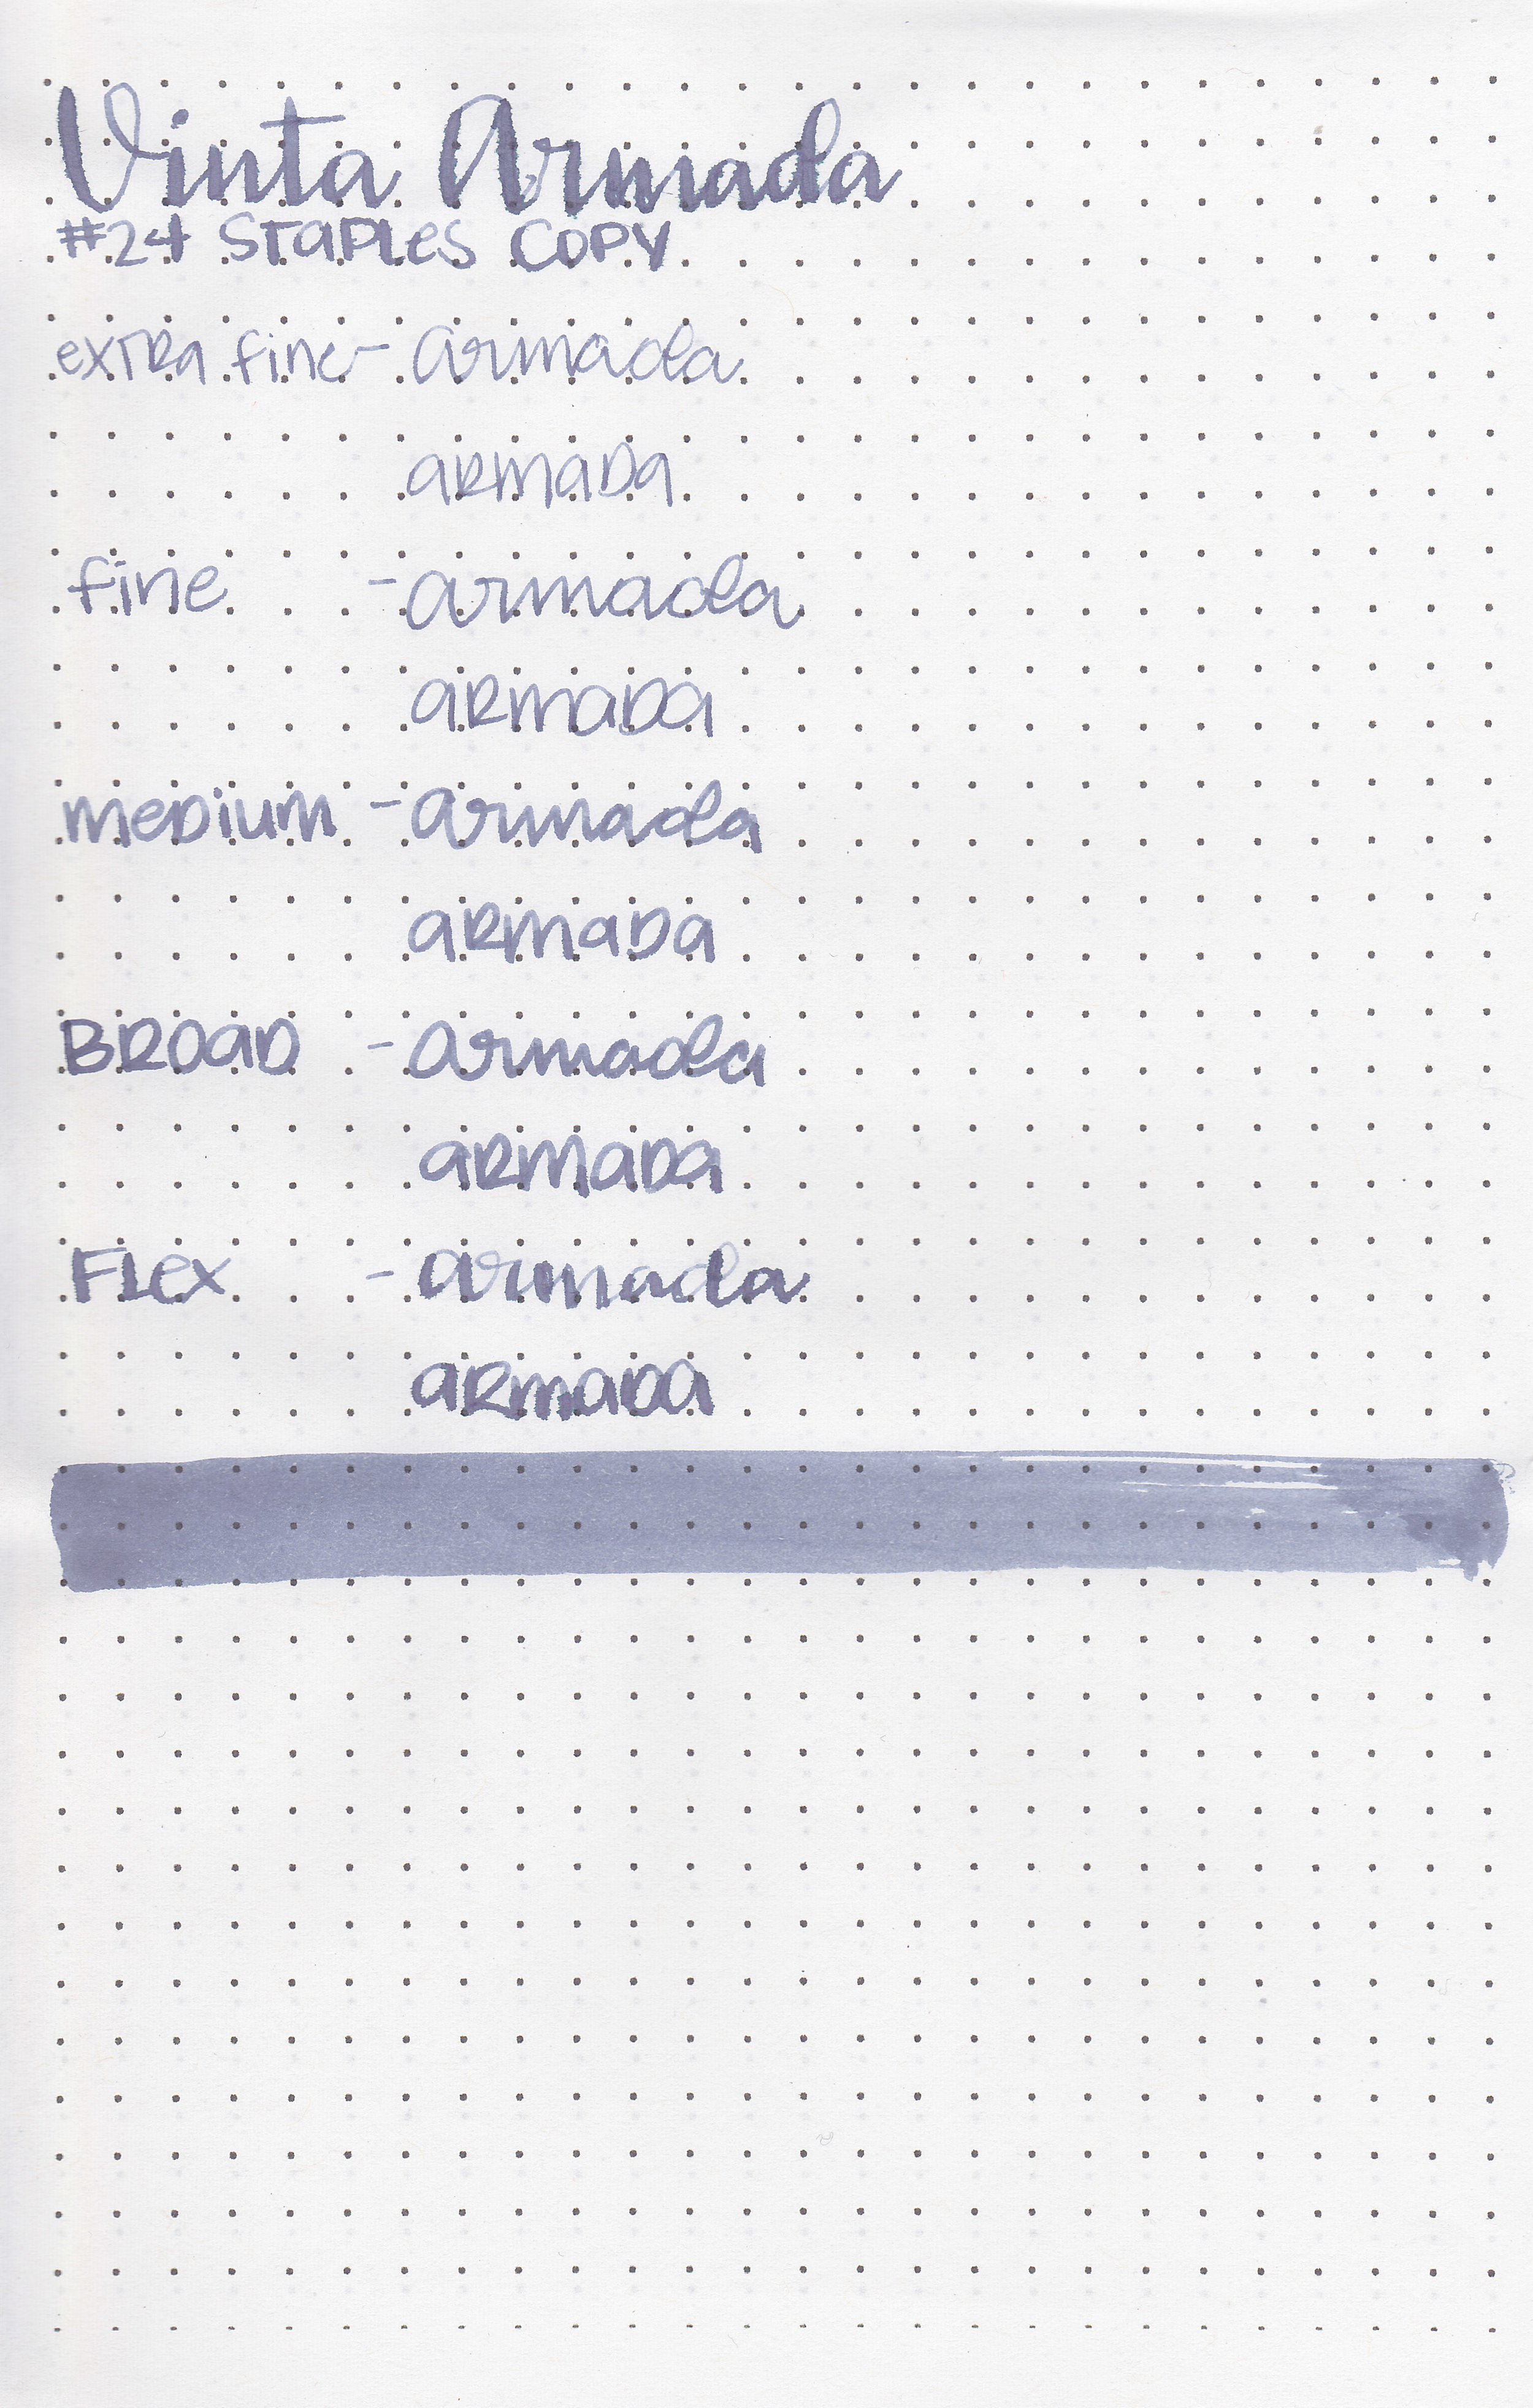 Vinta Armada
#24 STaPLes COPY
exTRa fine - armada
aRmaDa
fine - armada
aRmaDa
meDium - armada
aRmaDa
BROaD - armada
aRmaDa
FLex - armada
aRmaDa